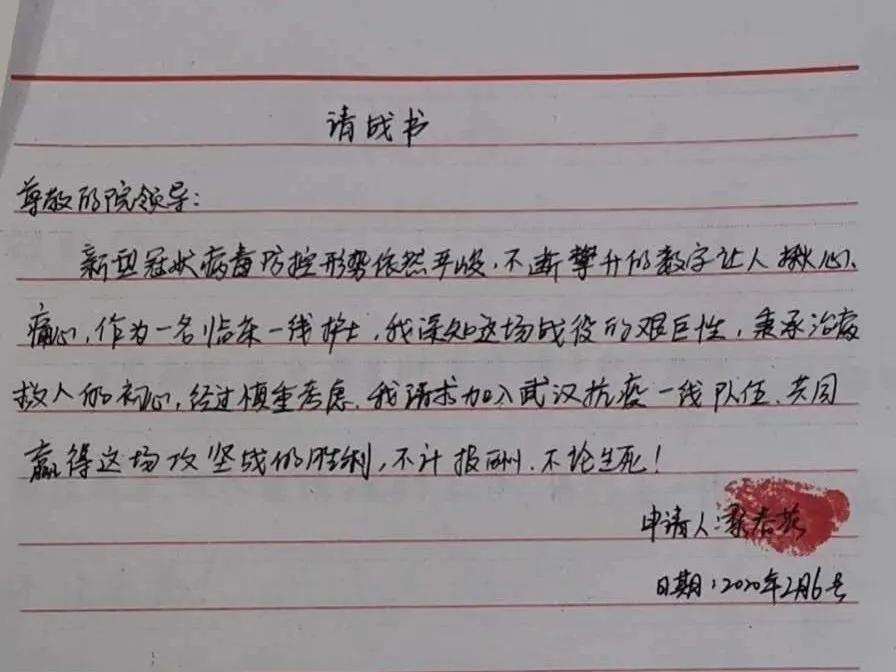 请战书
尊敬的院领导：
新型冠状病毒防控形势依然严峻，不断攀升的数字让人揪心、
痛心，作为一名临床一线护士，我深知这场战役的艰巨性，秉承治病
救人的初心，经过慎重考虑，我请求加入武汉抗疫一线队伍，共同
赢得这场攻坚战的胜利，不计报酬，不论生死！
申请人：
日期：2020年2月6号